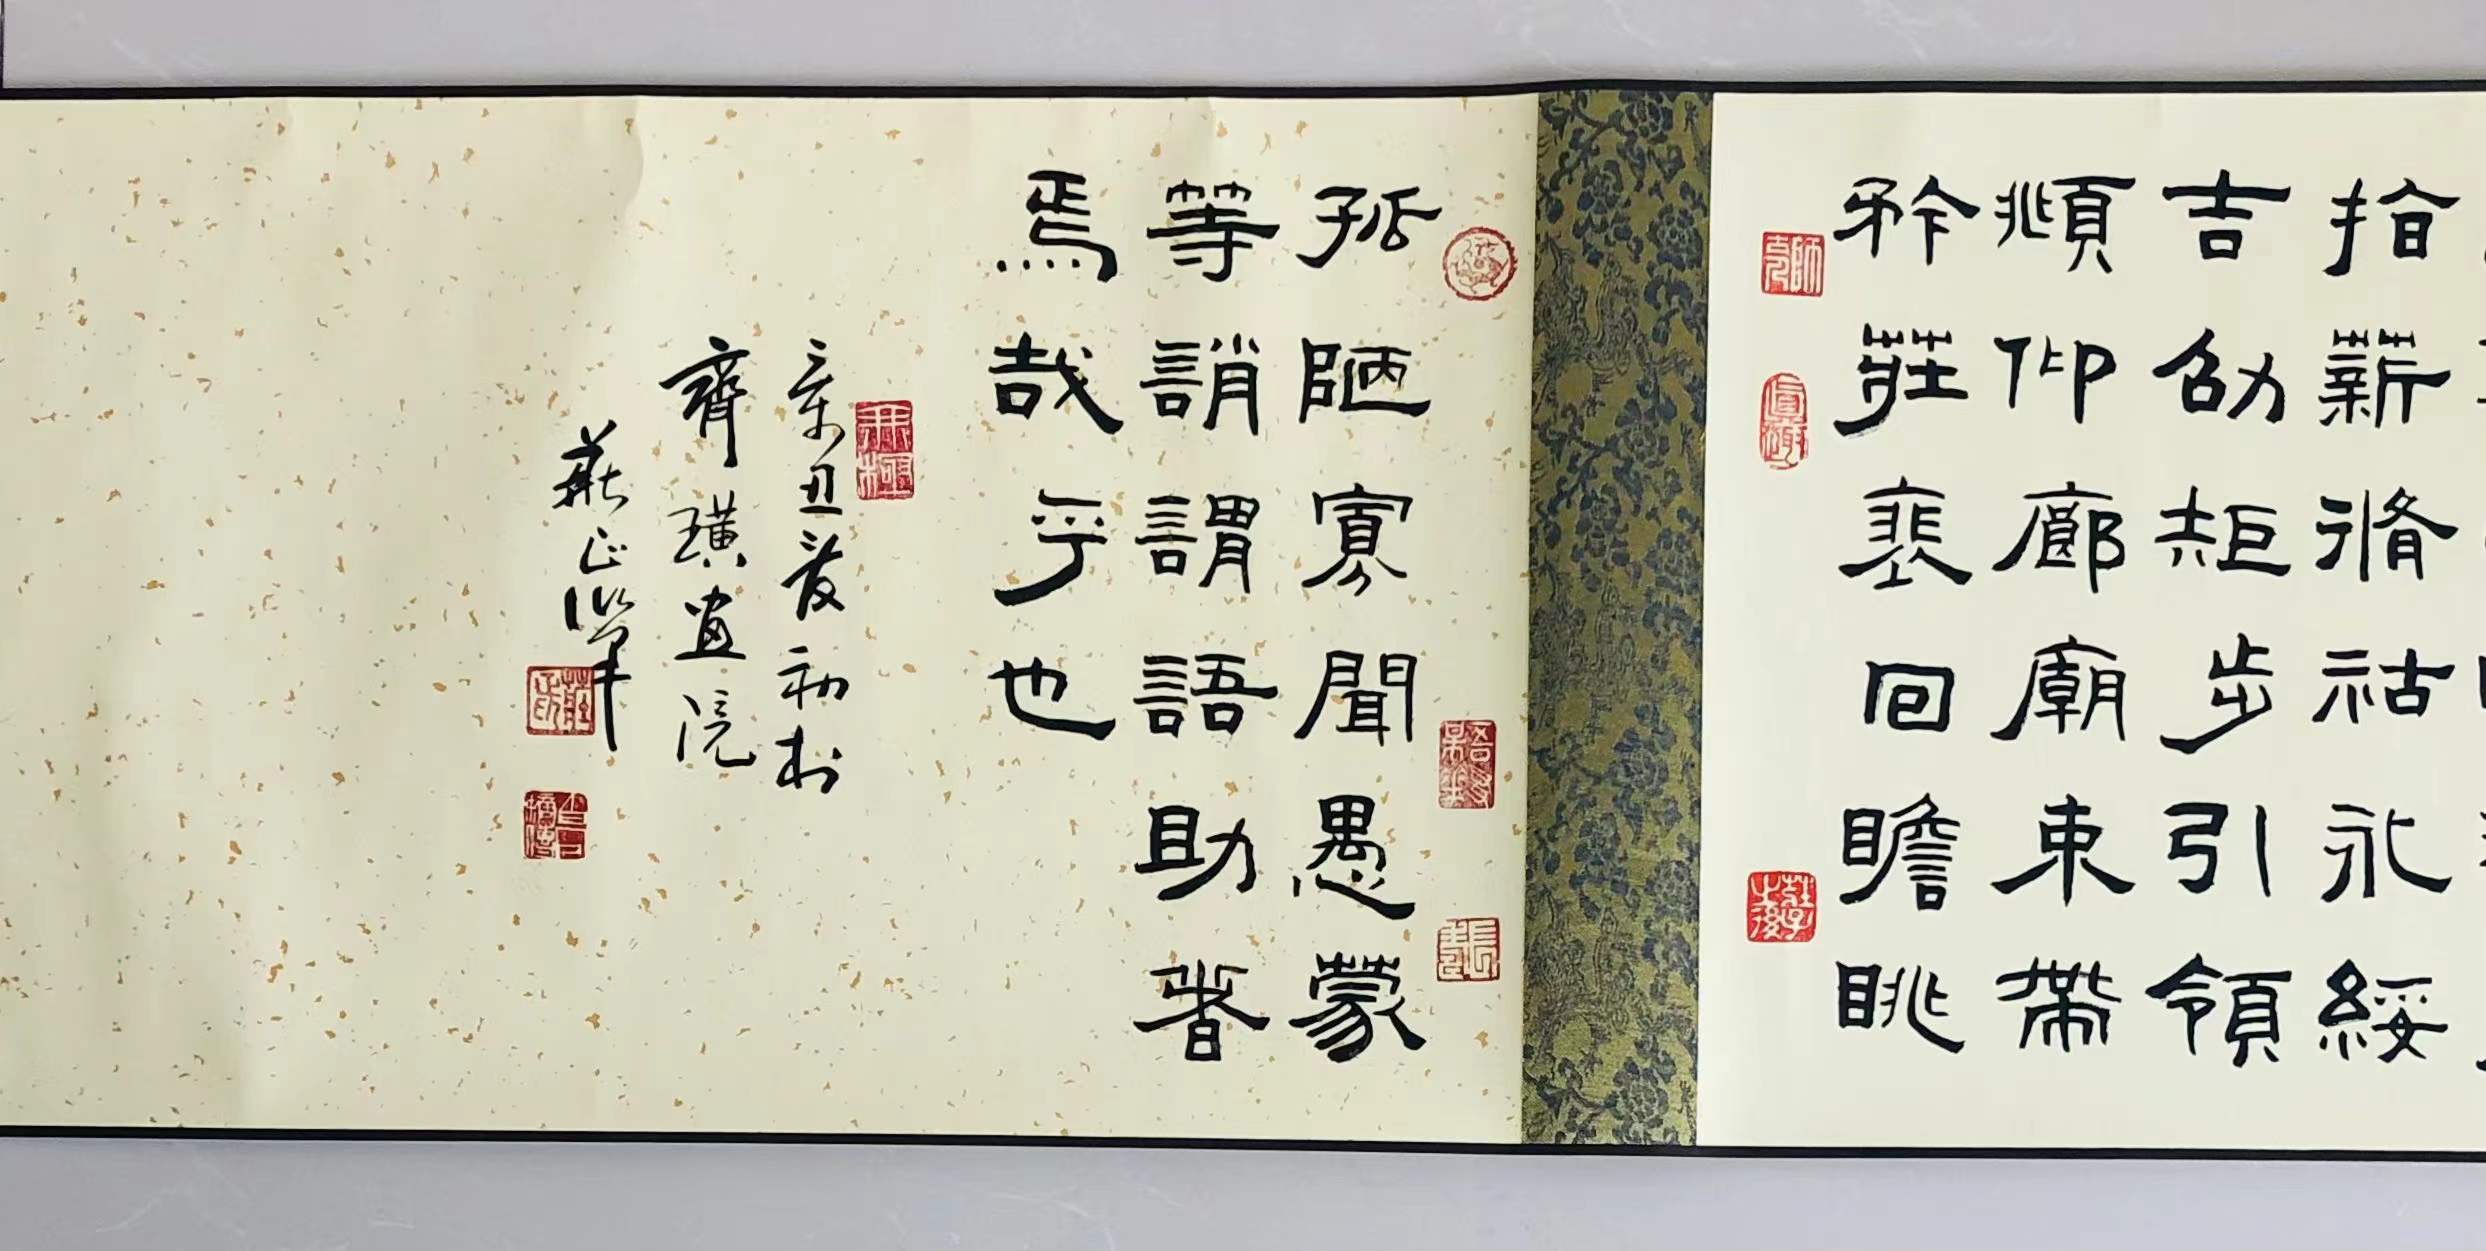 指薪脩祜永綏
吉劭矩步引領
頫仰廊廟束帶
矜莊裴回瞻眺
孤陋寡聞愚蒙
等誚謂語助者
焉哉乎也
辛丑夏初於
齊璜畫院
莊正
無極